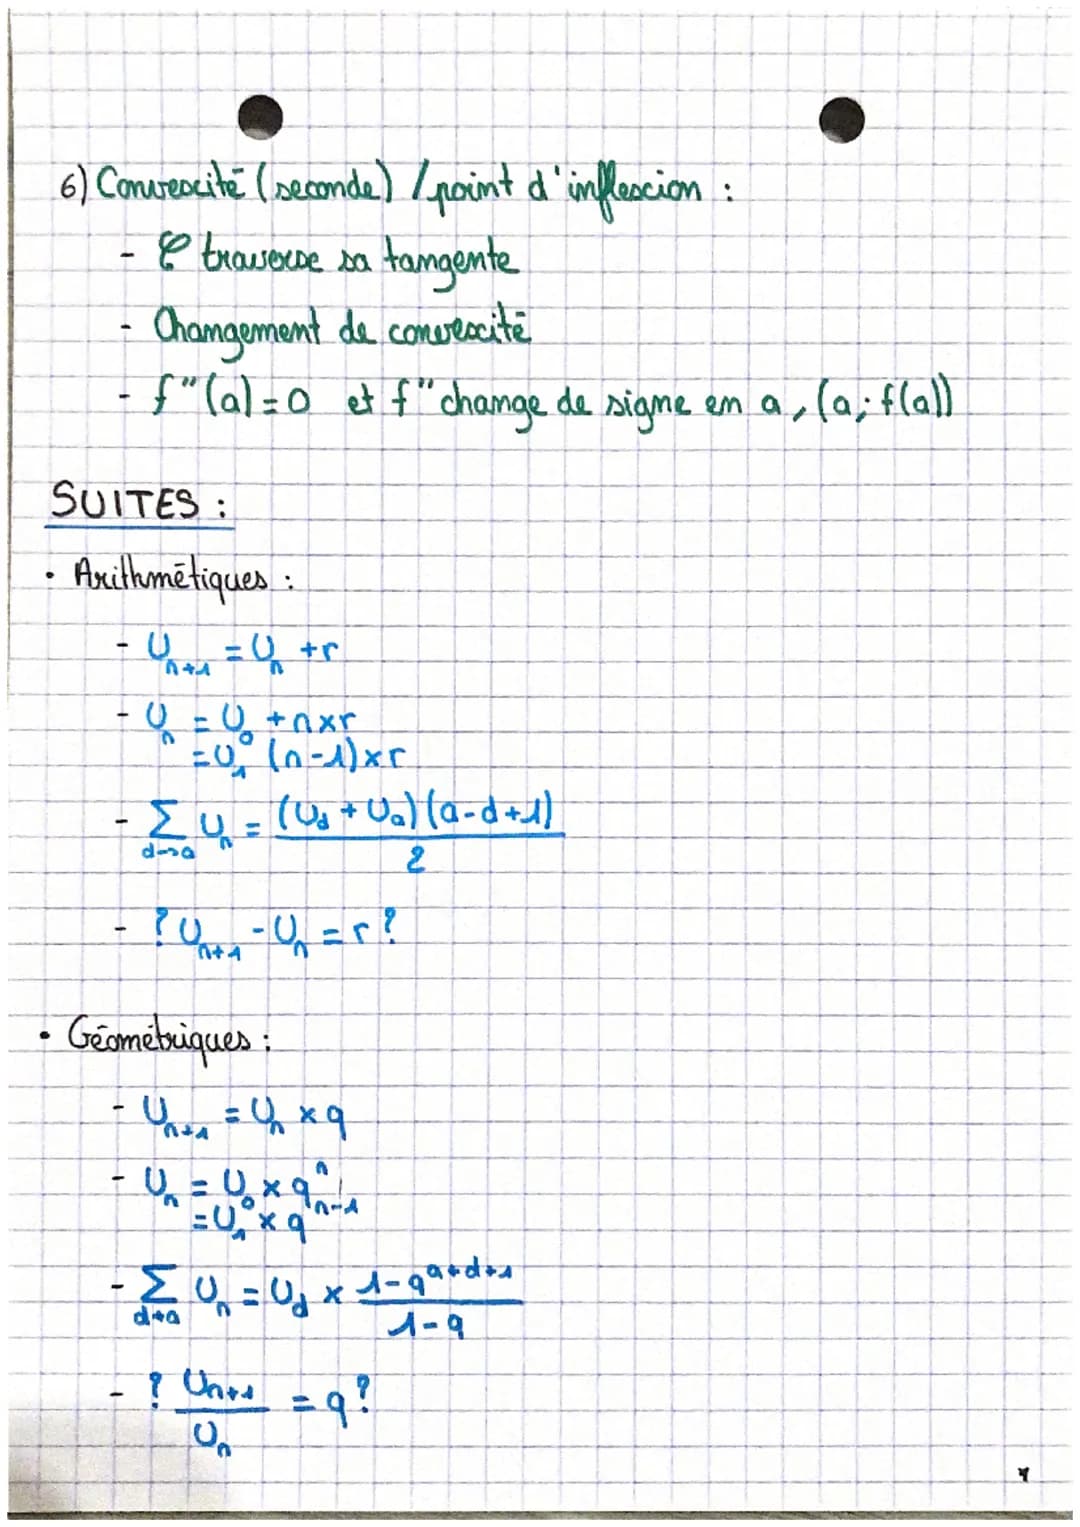 6) Convexité (seconde) / point d'inflexion :
- C traverse sa tangente
- Changement de convexité
- f"(a)=0 et f" change de signe en a, (a; f(a))
SUITES :
• Arithmétiques :
- U_{n+1} = U_n + r
- U_n = U_0 + n×r
= U_1 (n-1)×r
- Σ_{d→a} U_n = (U_d + U_a)(a-d+1) / 2
- ? U_{n+1} - U_n = r ?
• Géométriques :
- U_{n+1} = U_n × q
- U_n = U_0 × q^n
= U_1 × q^{n-1}
- Σ_{d→a} U_n = U_d × 1-q^{a+d+1} / 1-q
- ? U_{n+1} / U_n = q ?